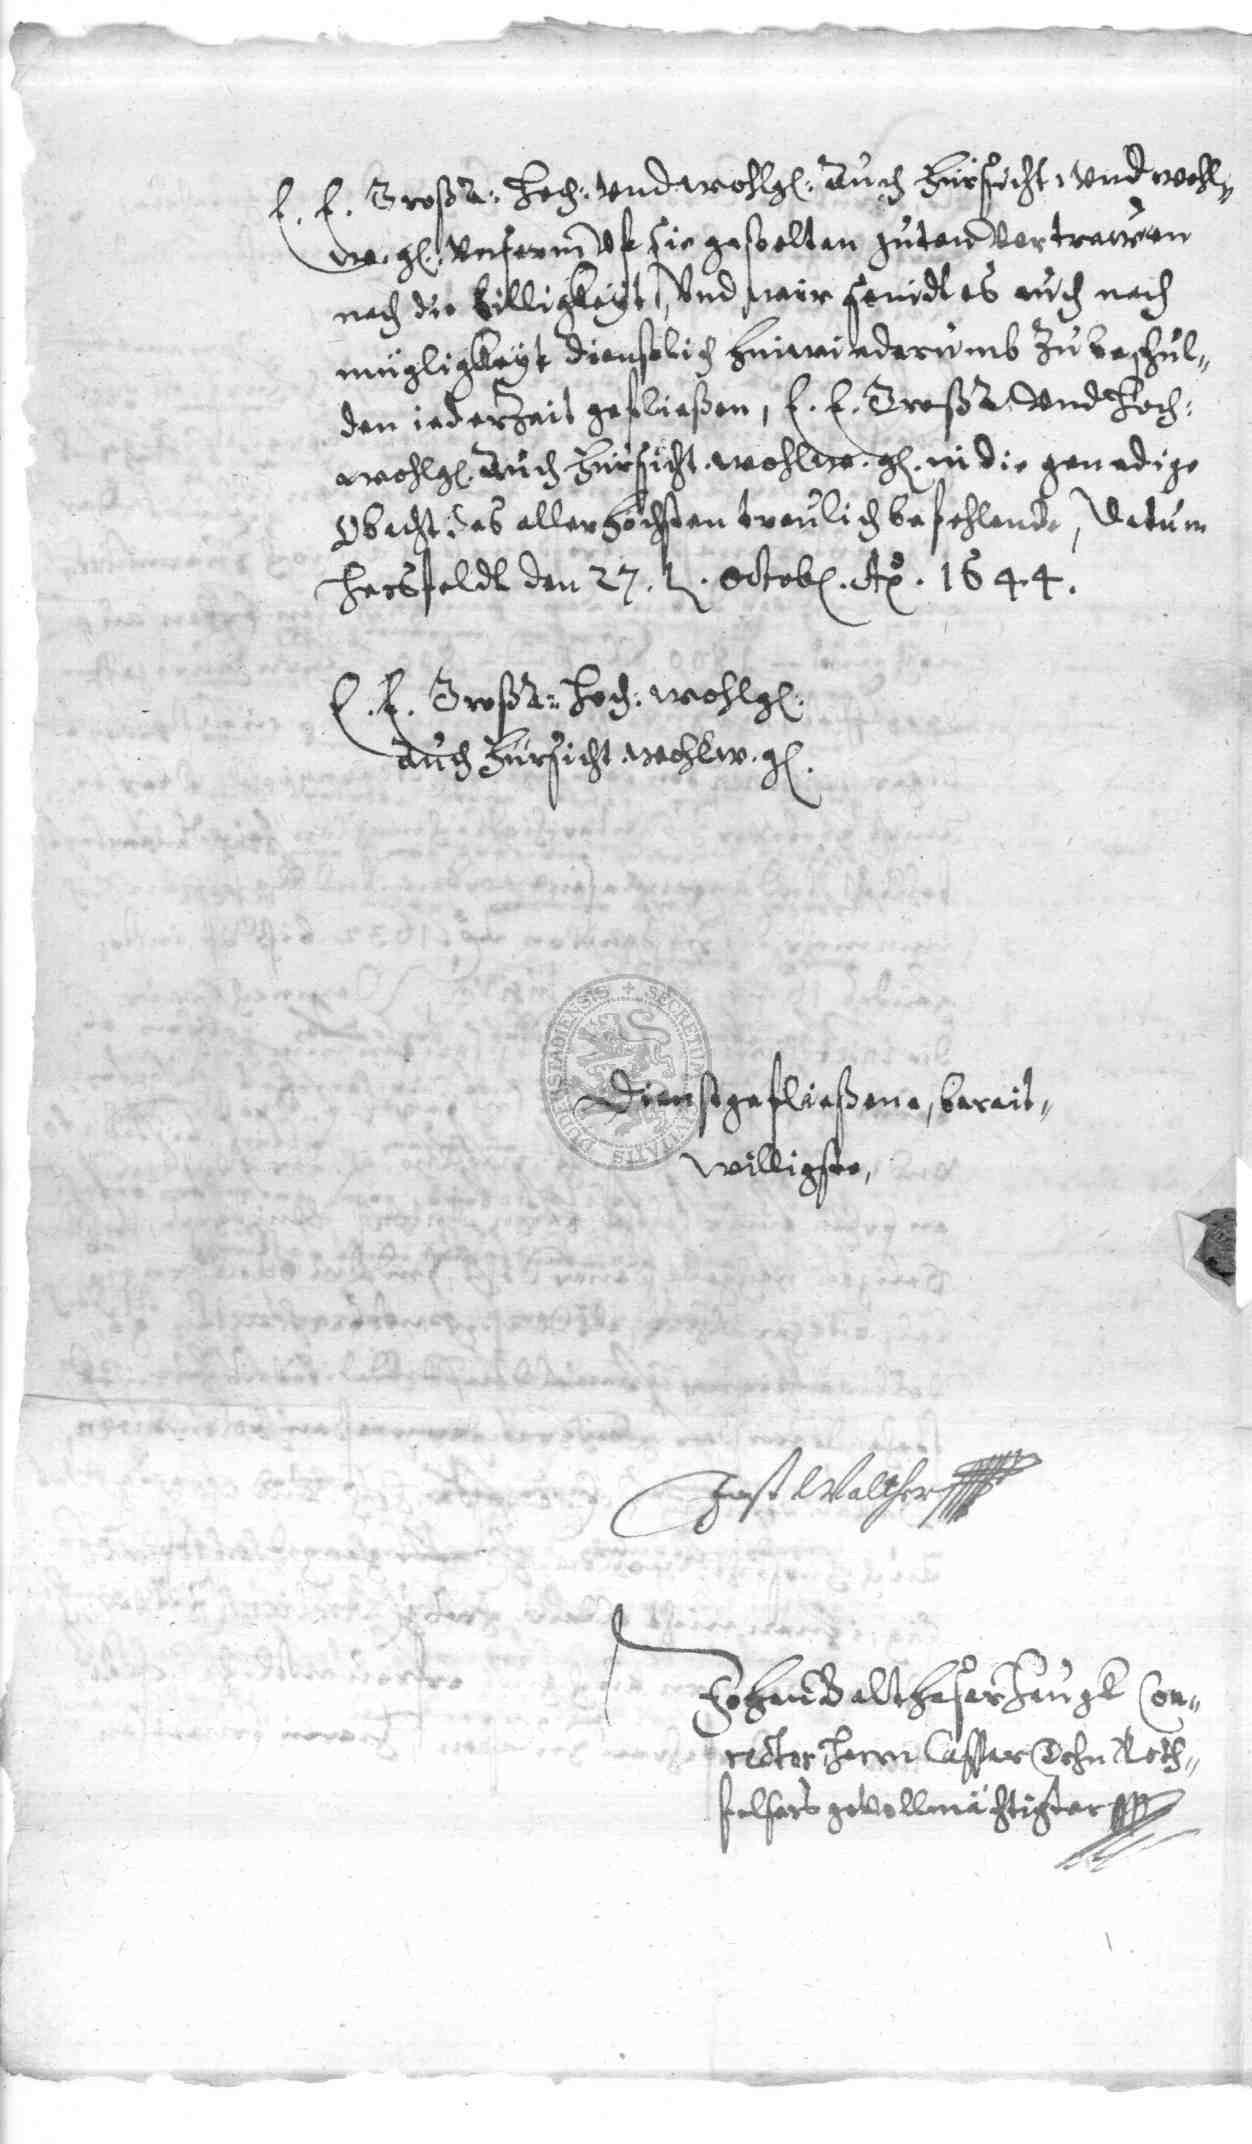 E. E. Großa: Hoch: vnd wohlg: Auch Fürsicht: vnd wohl-
we. g. vnserm vf sie gestelten guten Vertrawen
nach die billigkeyt, Vnd wir seindt es auch nach
mügligkeyt dienstlich hinwiederumb zu beschul-
den iederzeit gefließen, E. E. Großa. Vnd Hoch:
wohlg. Auch Fürsicht. wohlw. g. in die genedige
Obacht des allerhöchsten treulich befehlende, Datum
Hersfeldt den 27. Octob. Ao. 1644.
E. E. Großa: Hoch: wohlg:
Auch Fürsicht. wohlw. g.
SECRETUM CIVITATIS DUDERSTADIENSIS
Dienstgefließene, bereit-
willigste,
Jost Walther
Johan Balthasar Con-
rector Herrn Caspar Roth-
gevollmächtigter